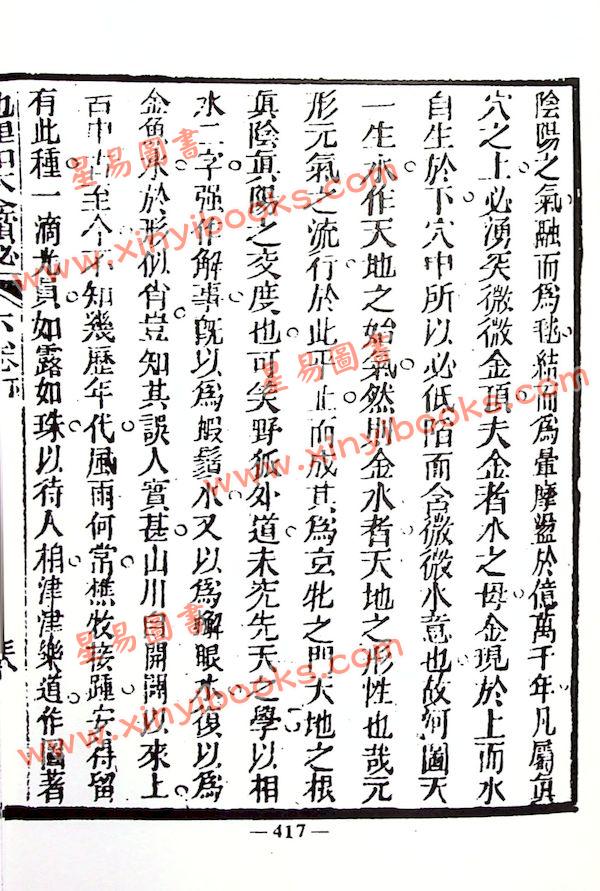 陰陽之氣融而為毬結而為暈摩盪於億萬千年凡屬眞
穴之上必湧突微微金頂夫金者水之母金現於上而水
自生於下穴中所以必低陷而含微微水意也故河圖天
一生水作天地之始氣然則金水者天地之形性也哉元
形元氣之流行於此乎止而成其為玄牝之門天地之根
眞陰眞陽之交度也可矣野狐外道未究先天之學以相
水二字强作解事旣以為蝦鬚水又以為蠏眼水復以為
金魚水於形似肖豈知其誤人實甚山川自開闢以來上
百中古至今不知幾歷年代風雨何常樵牧接踵安得留
有此種一滴尤眞如露如珠以待人相津津樂道作圖著
六卷下
星易圖書
www.xinyibooks.com
星易圖書
www.xinyibooks.com
星易圖書
www.xinyibooks.com
— 417 —